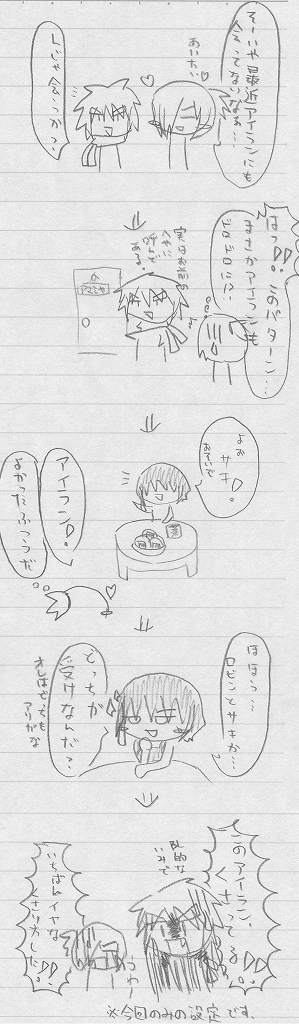 そーいや最近アイランにも
会ってないなぁ…
あいたい
しじゃ会うかっ
はっ!!このパターン…
まさかアイランも
ドロドロに!?
実はお前の
へやに
呼んで
ある。
アマミヤ
よぉ
サキ!
おそいで
アイラン!
よかったふつうだ
ほほう…
ロビンとサキか…
どっちが
受けなんだ?
オレはどっちも
アリかな
このアイラン、
くさってる!!
乱的な
いみで
いちばんイヤな
くさり方した!!
うわー
※今回のみの設定です.